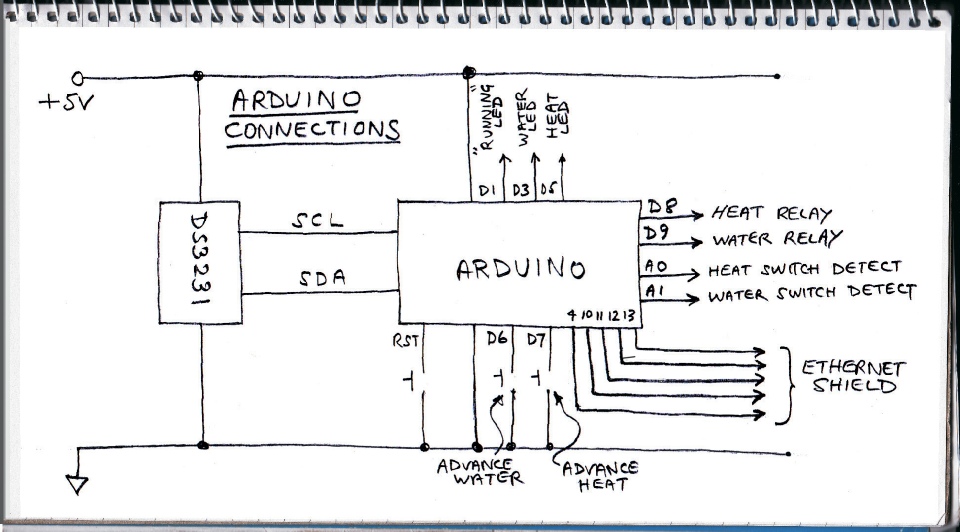 +5V
ARDUINO
CONNECTIONS
"RUNNING"
LED
WATER
LED
HEAT
LED
D1 D3 D5
DS3231
SCL
SDA
ARDUINO
D8 HEAT RELAY
D9 WATER RELAY
A0 HEAT SWITCH DETECT
A1 WATER SWITCH DETECT
4 10 11 12 13
RST
D6
D7
ETHERNET
SHIELD
ADVANCE
WATER
ADVANCE
HEAT